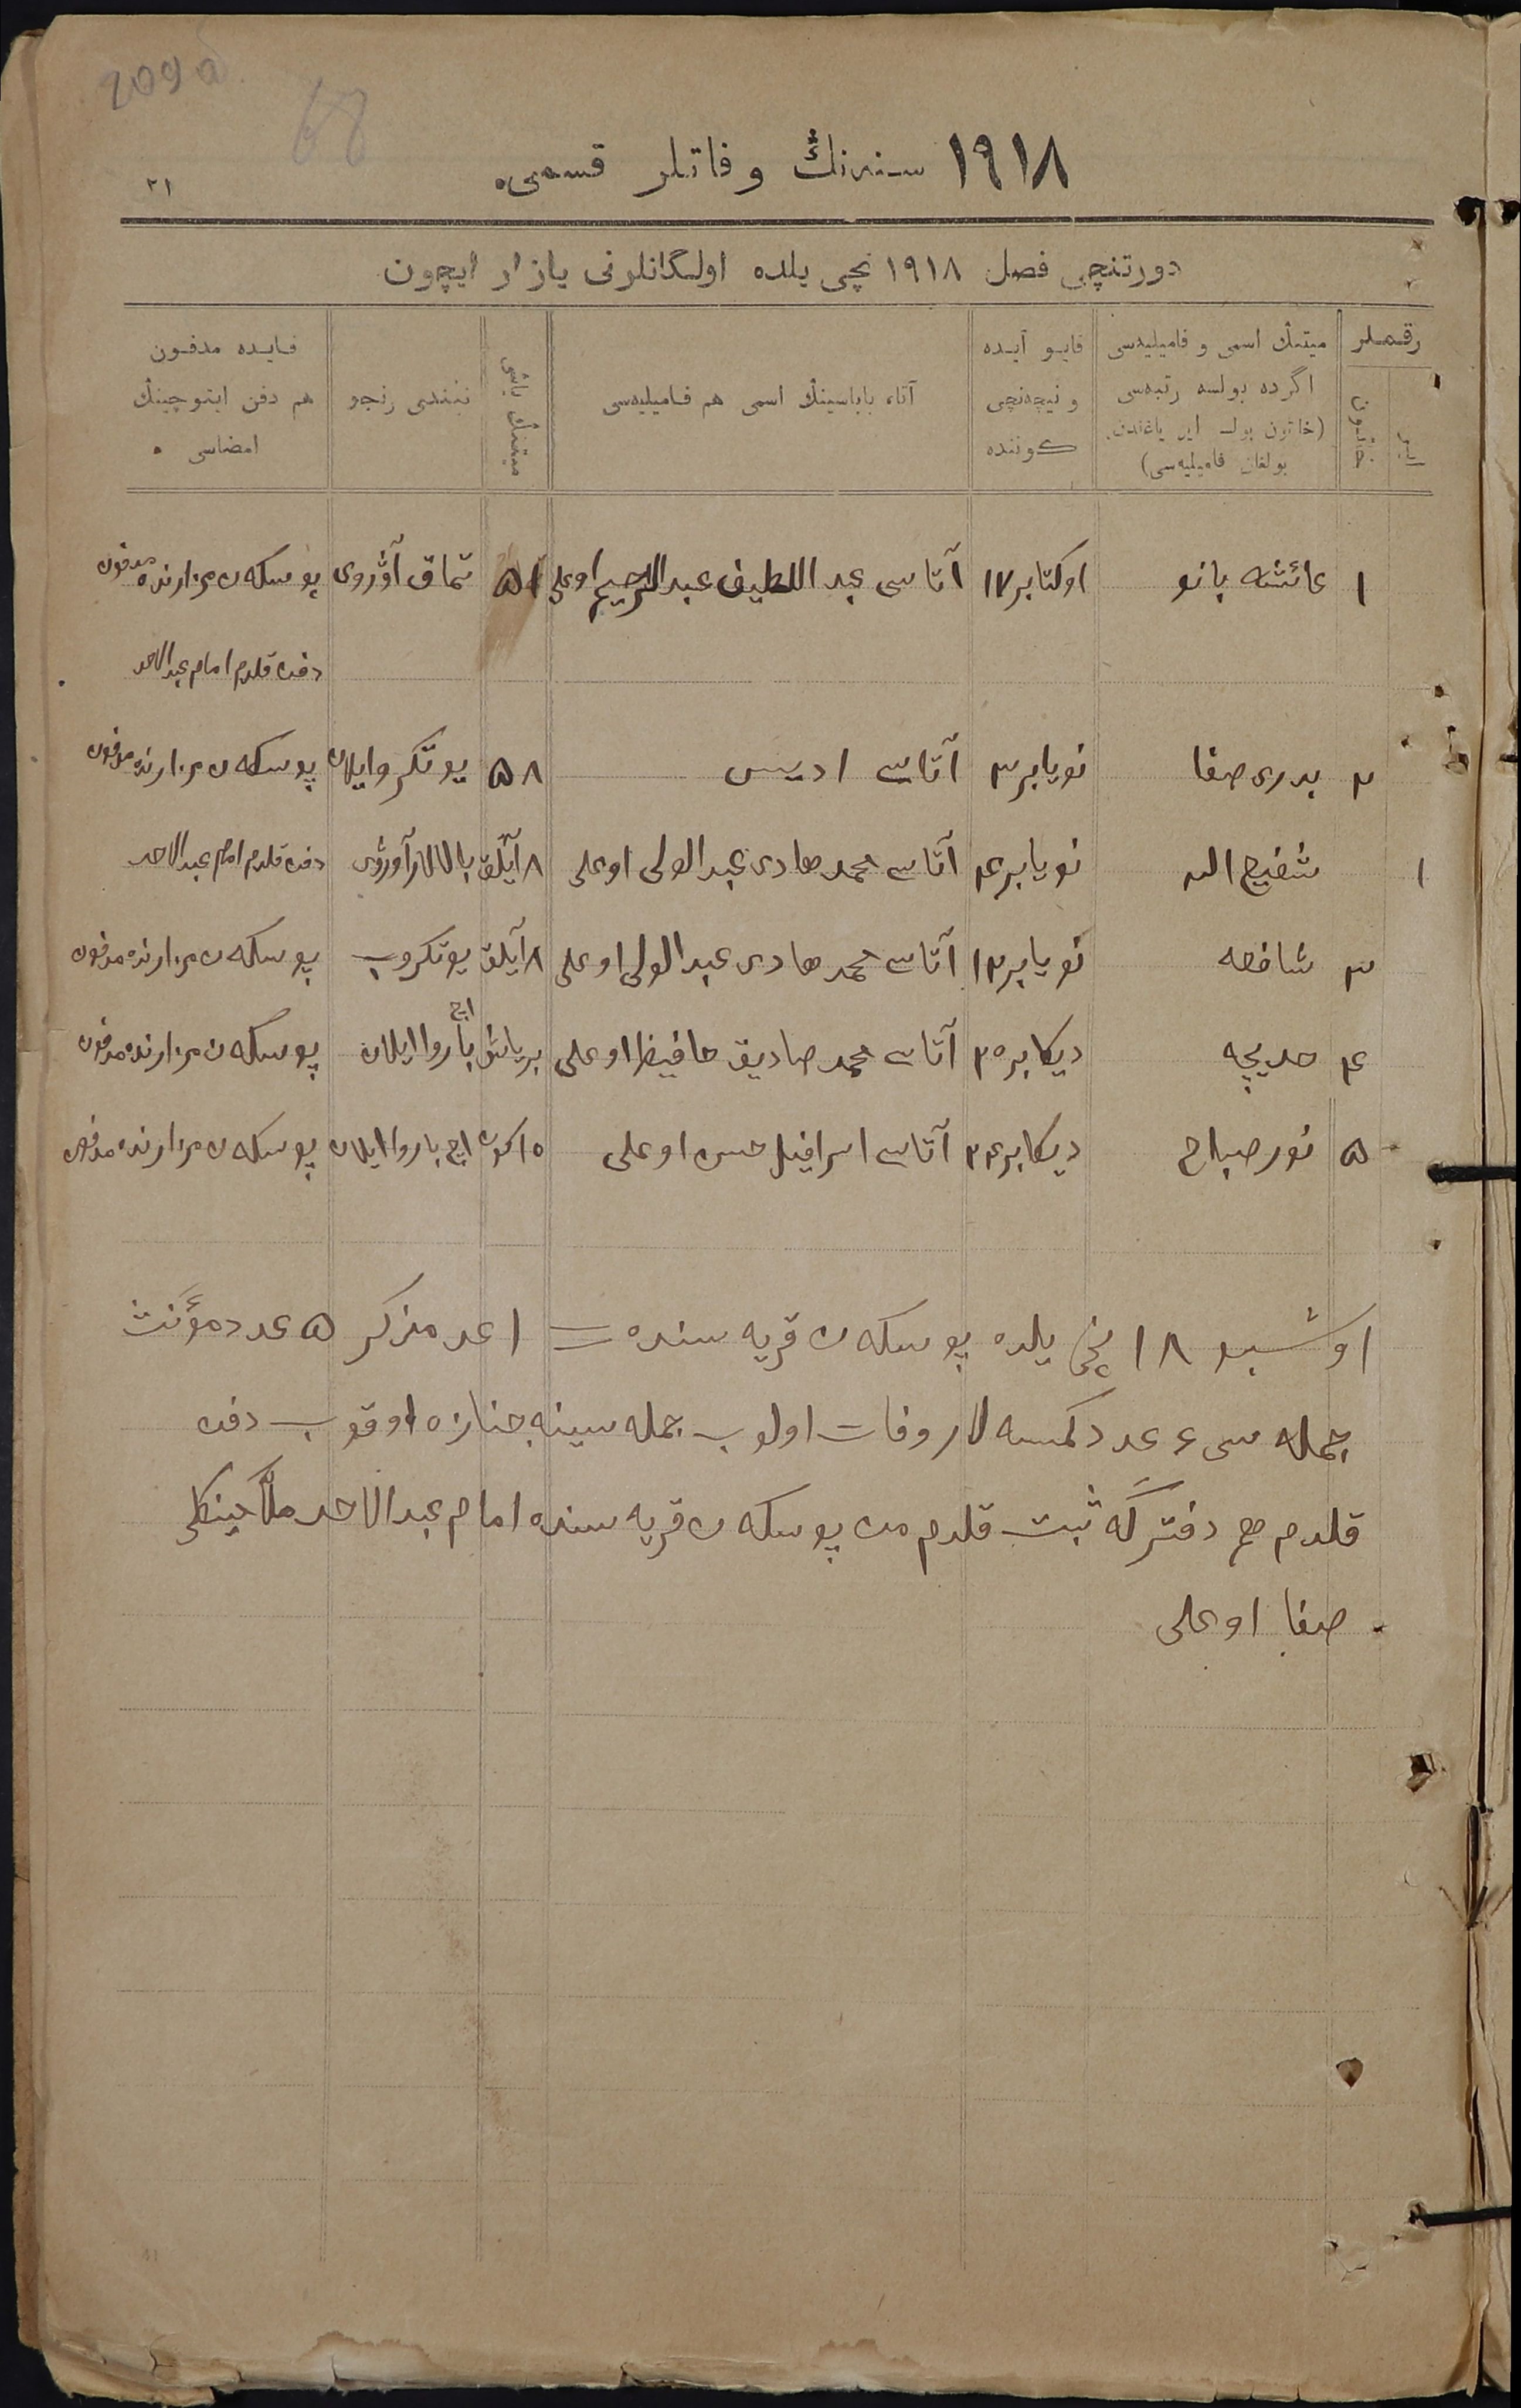 209 об
68
١٩١٨ سنه‌نڭ وفاتلر قسمی.
٢١
دورتنچی فصل ١٩١٨ نچی یلده اولگانلرنی یازار ایچون
رقملر
ایرلر
خاتونلر
میتنڭ اسمی و فامیلیه‌سی
اگرده بولسه رتبه‌سی
(خاتون بولسه ایر یاغندن
بولغان فامیلیه‌سی)
قایو آیده
و نیچه‌نچی
کوننده
آتا، باباسینڭ اسمی هم فامیلیه‌سی
میتنڭ یاشی
نیندی رنجو
قایده مدفون
هم دفن ایتوچینڭ
امضاسی •
١ عائشه بانو اوکتابر ١٧ آتاسی عبد اللطیف عبدالرحیم اوغلی ٥١ تماق آوروی پوسکەن مزارنده مدفون
دفن قلدم امام عبدالاحد
٢ بدری صفا نویابر ٣ آتاسی ادریس ٥٨ یوتکرو ایلان پوسکەن مزارنده مدفون
١ شفیع الله نویابر ٤ آتاسی محمد هادی عبدالولی اوغلی ٨ آیلق بالالار آوروی دفن قلدم امام عبدالاحد
٣ شافعه نویابر ١٢ آتاسی محمد هادی عبدالولی اوغلی ٨ آیلق یوتکروب پوسکەن مزارنده مدفون
٤ خدیجه دیکابر ٢٥ آتاسی محمد صادیق حافیظ اوغلی بر یاش اچ بارو ایلان پوسکەن مزارنده مدفون
٥ نور صباح دیکابر ٢٤ آتاسی اسرافیل حسن اوغلی ١٥ کون اچ بارو ایلان پوسکەن مزارنده مدفون
اوشبو ١٨ نچی یلده پوسکەن قریه سنده = ١ عدد مذکر ٥ عدد مؤنث
جمله سی ٦ عدد کمسه لار وفات اولوب جمله سینه جنازه اوقوب دفن
قلدم هم دفترگه ثبت قلدم من پوسکەن قریه سنده امام عبدالاحد
صفا اوغلی